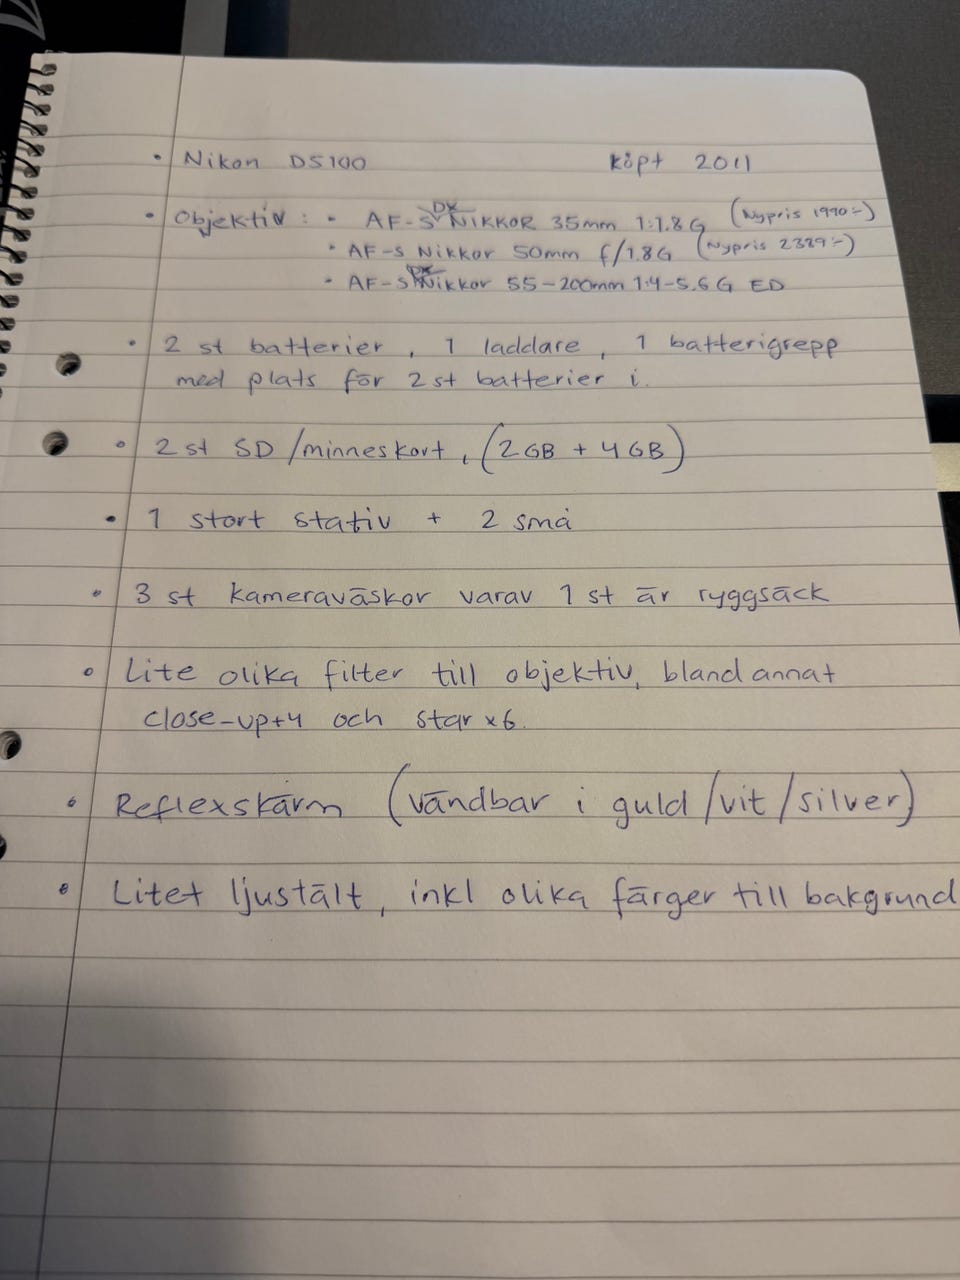 • Nikon D5100 köpt 2011
• Objektiv : • AF-S DX NIKKOR 35mm 1:1.8 G (Nypris 1990:-)
• AF-S Nikkor 50mm f/1.8G (Nypris 2329:-)
• AF-S DX Nikkor 55-200mm 1:4-5.6 G ED
• 2 st batterier, 1 laddare, 1 batterigrepp
med plats för 2 st batterier i.
• 2 st SD/minneskort, (2 GB + 4 GB)
• 1 stort stativ + 2 små
• 3 st kameraväskor varav 1 st är ryggsäck
• Lite olika filter till objektiv, bland annat
close-up+4 och star x6.
• Reflexskärm (vändbar i guld/vit/silver)
• Litet ljustält, inkl olika färger till bakgrund